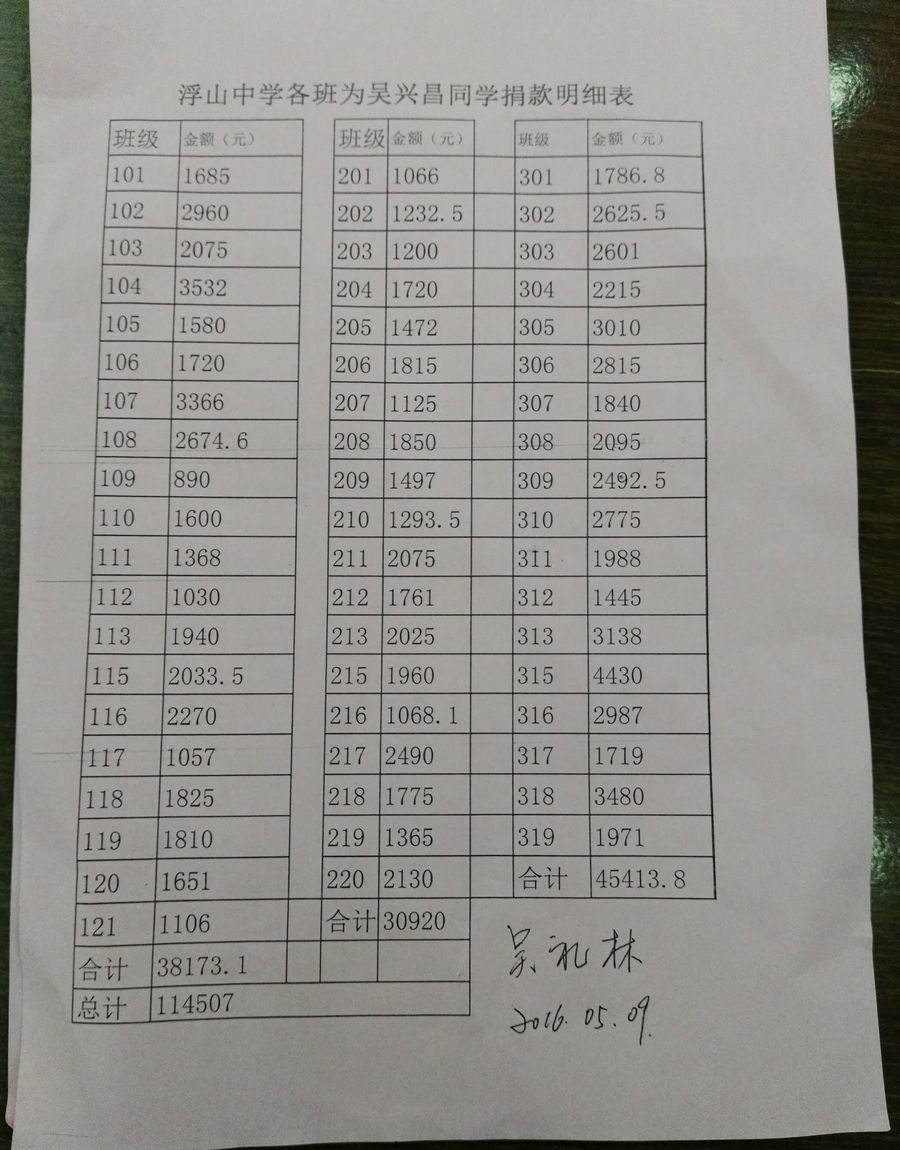 浮山中学各班为吴兴昌同学捐款明细表
班级 金额（元） 班级 金额（元） 班级 金额（元）
101 1685 201 1066 301 1786.8
102 2960 202 1232.5 302 2625.5
103 2075 203 1200 303 2601
104 3532 204 1720 304 2215
105 1580 205 1472 305 3010
106 1720 206 1815 306 2815
107 3366 207 1125 307 1840
108 2674.6 208 1850 308 2095
109 890 209 1497 309 2492.5
110 1600 210 1293.5 310 2775
111 1368 211 2075 311 1988
112 1030 212 1761 312 1445
113 1940 213 2025 313 3138
115 2033.5 215 1960 315 4430
116 2270 216 1068.1 316 2987
117 1057 217 2490 317 1719
118 1825 218 1775 318 3480
119 1810 219 1365 319 1971
120 1651 220 2130 合计 45413.8
121 1106 合计 30920
合计 38173.1
总计 114507
吴礼林
2016.05.09.